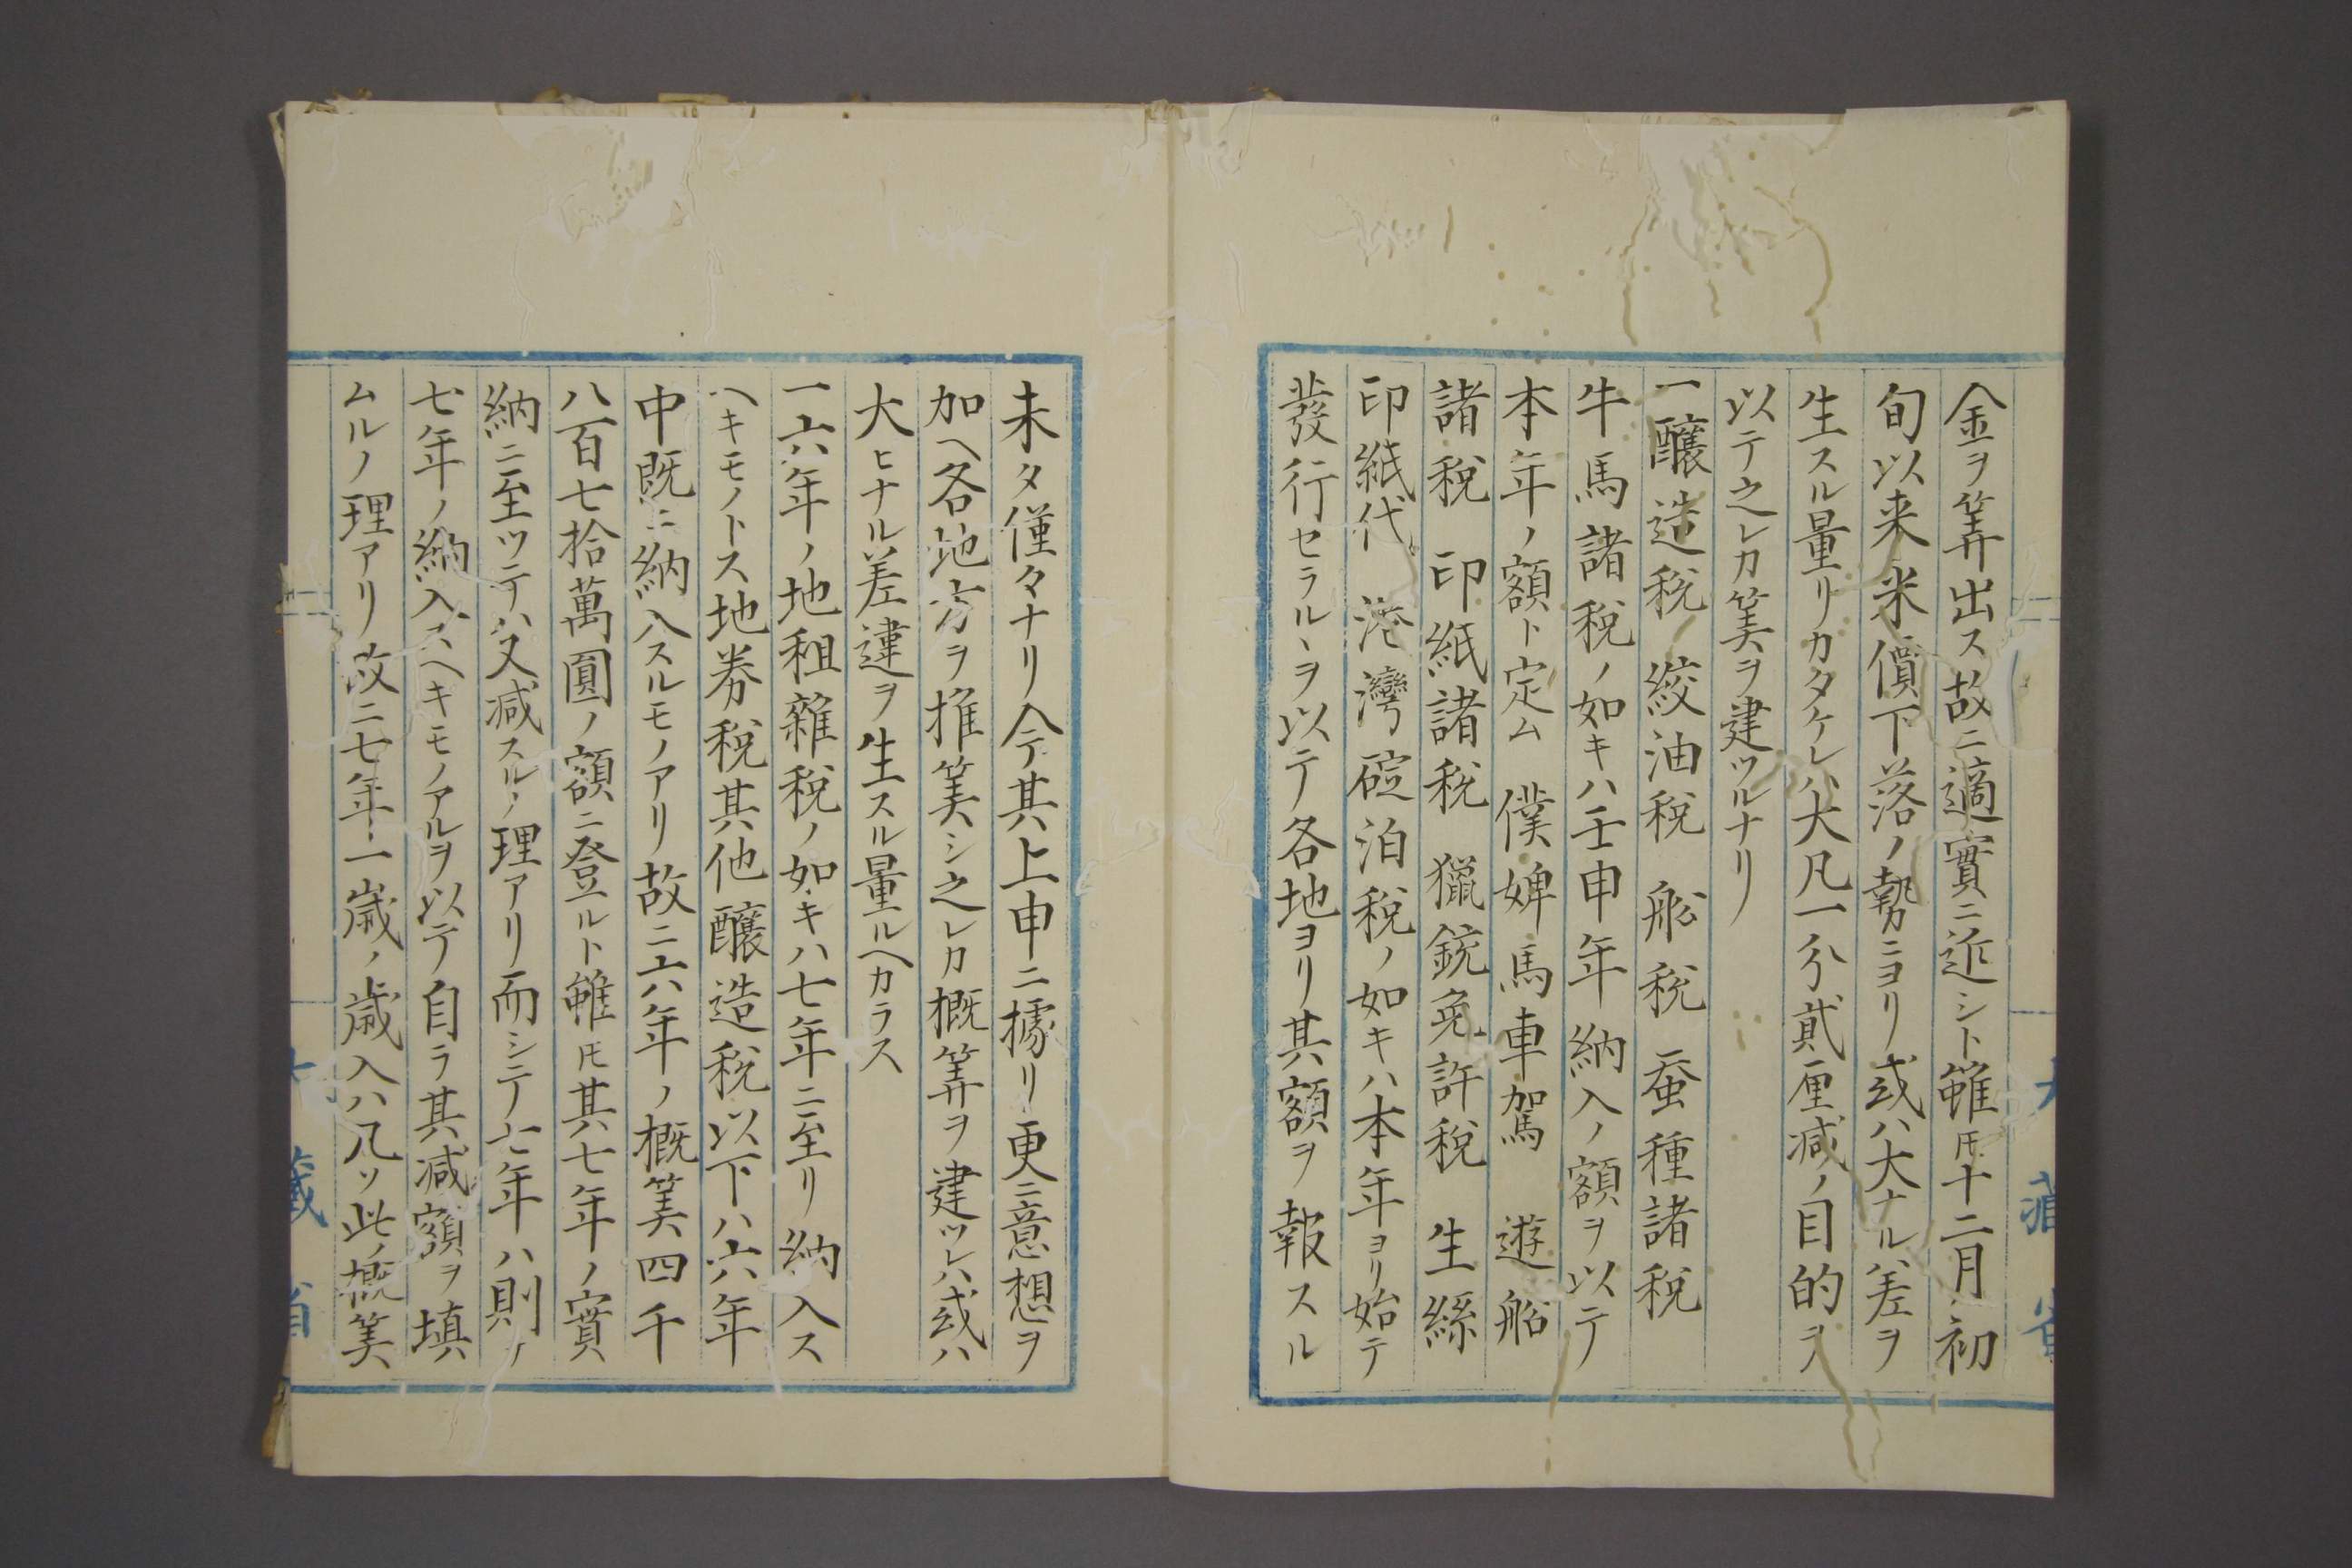 金ヲ筭出ス故ニ適實ニ近シト雖𪜈十二月初
旬以来米價下落ノ勢ニヨリ或ハ大ナル差ヲ
生スル量リカタケレハ大凡一分貳厘减ノ目的ヲ
以テ之レカ筭ヲ建ツルナリ
一醸造税 絞油税 船税 蚕種諸税
牛馬諸税ノ如キハ壬申年納入ノ額ヲ以テ
本年ノ額ト定ム 僕婢馬車駕 遊船
諸税 印紙諸税 獵銃免許税 生絲
印紙代 港灣碇泊税ノ如キハ本年ヨリ始テ
發行セラルヽヲ以テ各地ヨリ其額ヲ報スル
未タ僅々ナリ今其上申ニ據リ更ニ意想ヲ
加ヘ各地方ヲ推筭シ之レカ概筭ヲ建ツレハ或ハ
大ヒナル差違ヲ生スル量ルヘカラス
一六年ノ地租雜税ノ如キハ七年ニ至リ納入ス
ヘキモノトス地券税其他醸造税以下ハ六年
中既ニ納入スルモノアリ故ニ六年ノ概筭四千
八百七拾萬圓ノ額ニ登ルト雖𪜈其七年ノ實
納ニ至ツテハ又减スルノ理アリ而シテ七年ハ則ケ
七年ノ納入スヘキモノアルヲ以テ自ラ其减額ヲ填
ムルノ理アリ故ニ七年一歳ノ歳入ハ凡ソ此ノ概筭
大藏省